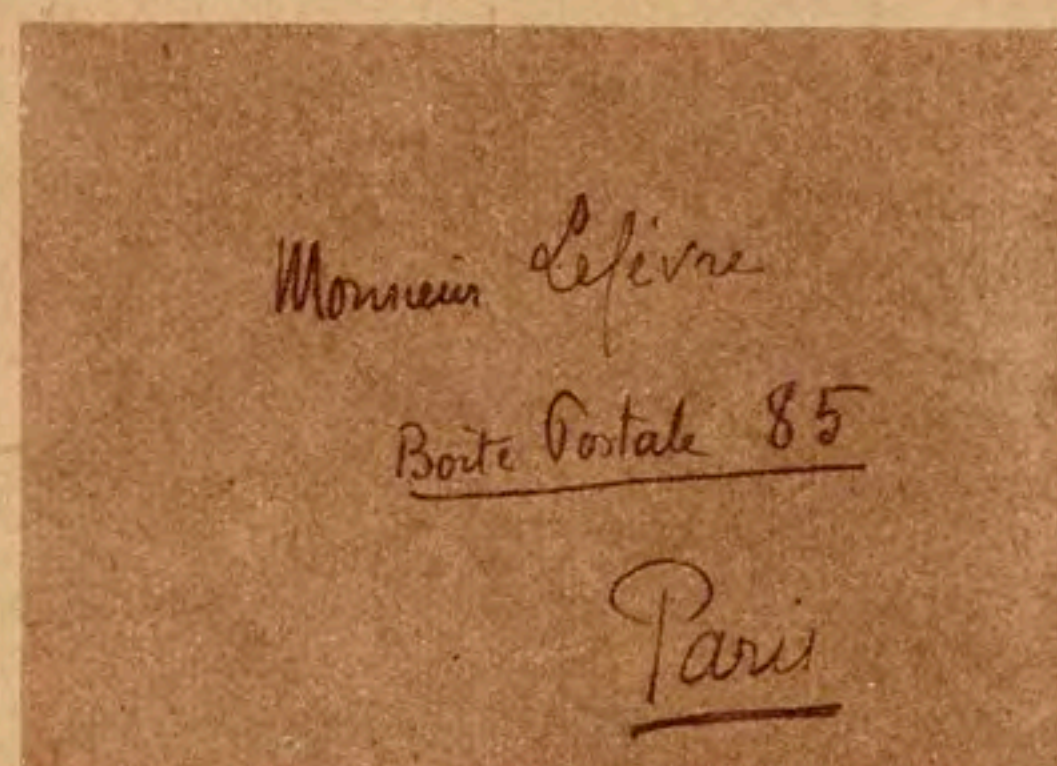 Monsieur Lefèvre
Boite Postale 85
Paris